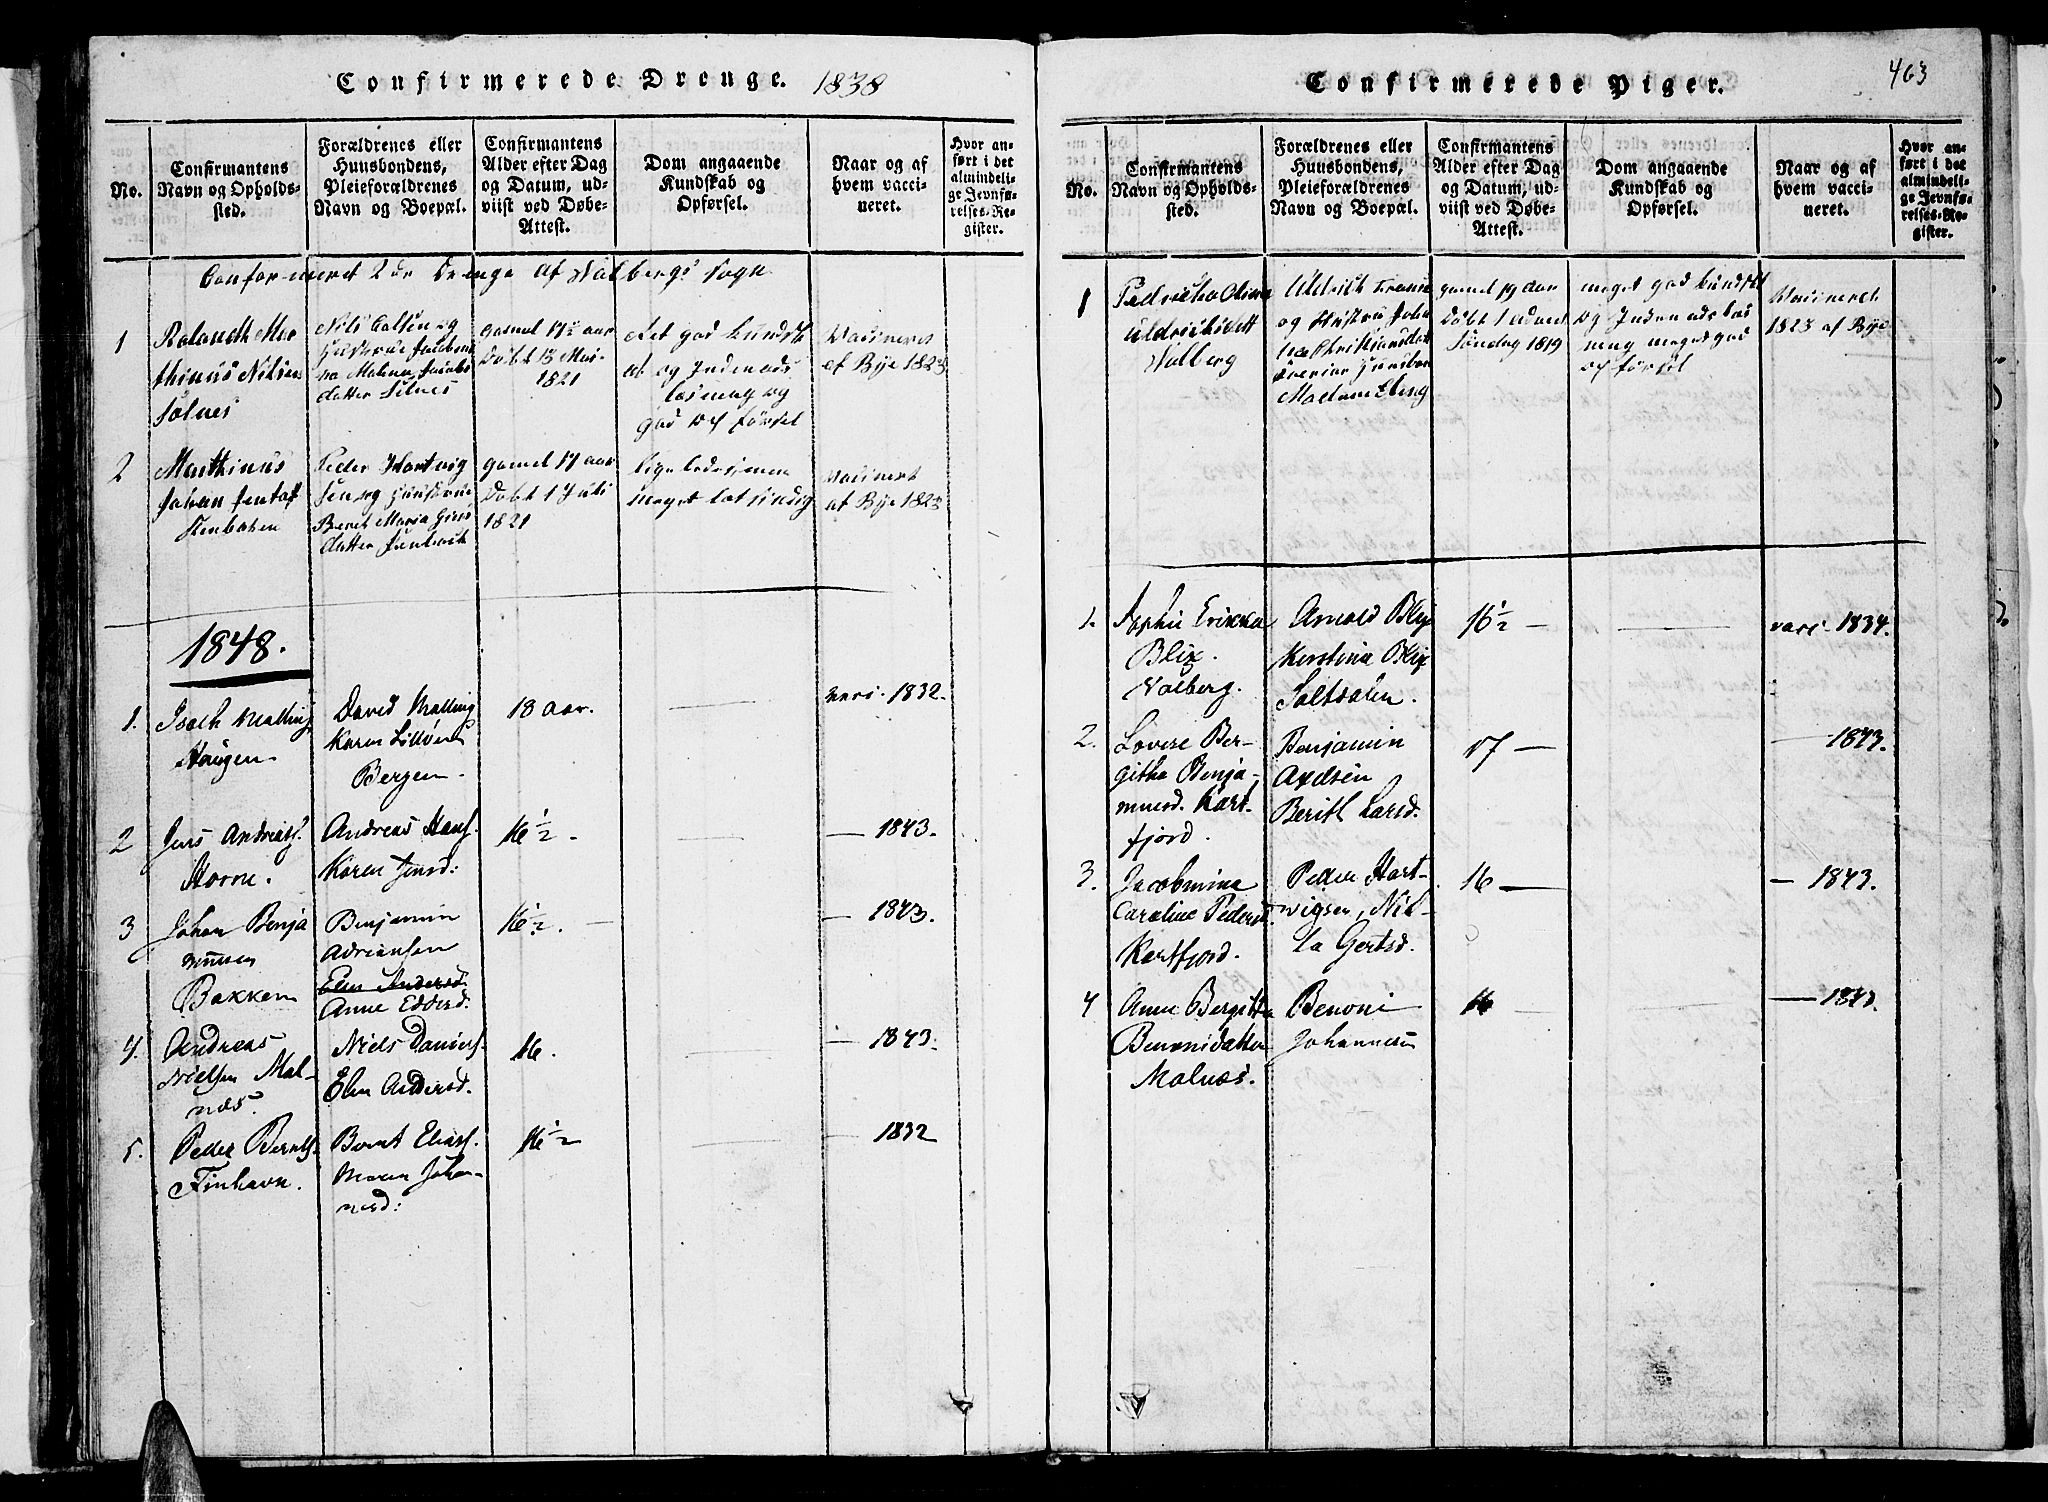 Confirmerede Drenge. 1838
No.
Confirmantens
Navn og Opholds-
sted.
Forældrenes eller
Huusbondens,
Pleieforældrenes
Navn og Boepæl.
Confirmantens
Alder efter Dag
og Datum, ud-
viist ved Døbe-
Attest.
Dom angaaende
Kundskab og
Opførsel.
Naar og af
hvem vacci-
neret.
Hvor an-
ført i det
almindeli-
ge Jevnfø-
relses-Re-
gister.
2de Drenge af Valbergs Sogn
1
Rolandth Mar
thinus Nilsen
Sølnes
Nils
datter Sølnes
gamel 17½ aar
Døbt 13 Mai
1821
Ret god kundsk
ab og Indenads
læsning og
god op førsel
Vacineret
af Bye 1823
2
Marthinus
Johan
Peder Hartvig
Sen og Hustrue
Beret Maria
datter
gamel 17 aar
Døbt 1 Juli
1821
lige ledesjemen
meget lat sindig
Vacinert
af Bye 1823
1848.
1.
Isach Malling
Haugen
David Malling
Karen
Bergen
18 Aar.
vacc. 1832.
2
Jens Andreas.
Horne.
Andreas Hans.
Karen Jensd:
16½ -
— 1843.
3
Johan Benja
minsen
Bakken
Benjamin
Adriansen
Elen Andersd.
Anne Edvrd.
16½. —
— 1843.
4.
Andreas
Nielsen Mal-
næs.
Niels Daniels.
Elen Andersd.
16.
— 1843.
5.
Peder Bernts.
Finhavn.
Bernt Elias.
Maren Johan-
nesd:
16½
— 1832
Confirmerede Piger.
463
No.
Confirmantens
Navn og Opholds-
sted.
Forældrenes eller
Huusbondens,
Pleieforældrenes
Navn og Boepæl.
Confirmantens
Alder efter Dag
og Datum, ud-
viist ved Døbe-
Attest.
Dom angaaende
Kundskab og
Opførsel.
Naar og af
hvem vacci-
neret.
Hvor an-
ført i det
almindeli-
ge Jevnfø-
relses-Re-
gister.
1
Uldrichsdatt
Valberg
Uldrich
og Hustru Joha
na Christjansdat
Madam Ebeng
gamel 19 aar
Døbt 1 Advent
Søndag 1819
meget god kundsk
og Inden ads læs
ning meget god
op førsel
Vacineret
1823 af Bye
1.
Sophie Erikka
Blix.
Valberg.
Arnold Blix
Kerstina Blix
Saltdalen.
16½ —
vacc. 1834.
2.
Lovise Ber-
githa Benja-
minsd. Kart-
fjord.
Benjamin
Axelsen
Berith Larsd.
17 —
— 1843.
3.
Jacobmina
Caroline Pedersd.
Kartfjord.
Peder Hart-
vigsen, Nil-
la Gertsd.
16 —
— 1843.
4
Anne Bergitta
Benonidatter
Malnæs.
Benoni
Johannesen
16 —
— 1843.